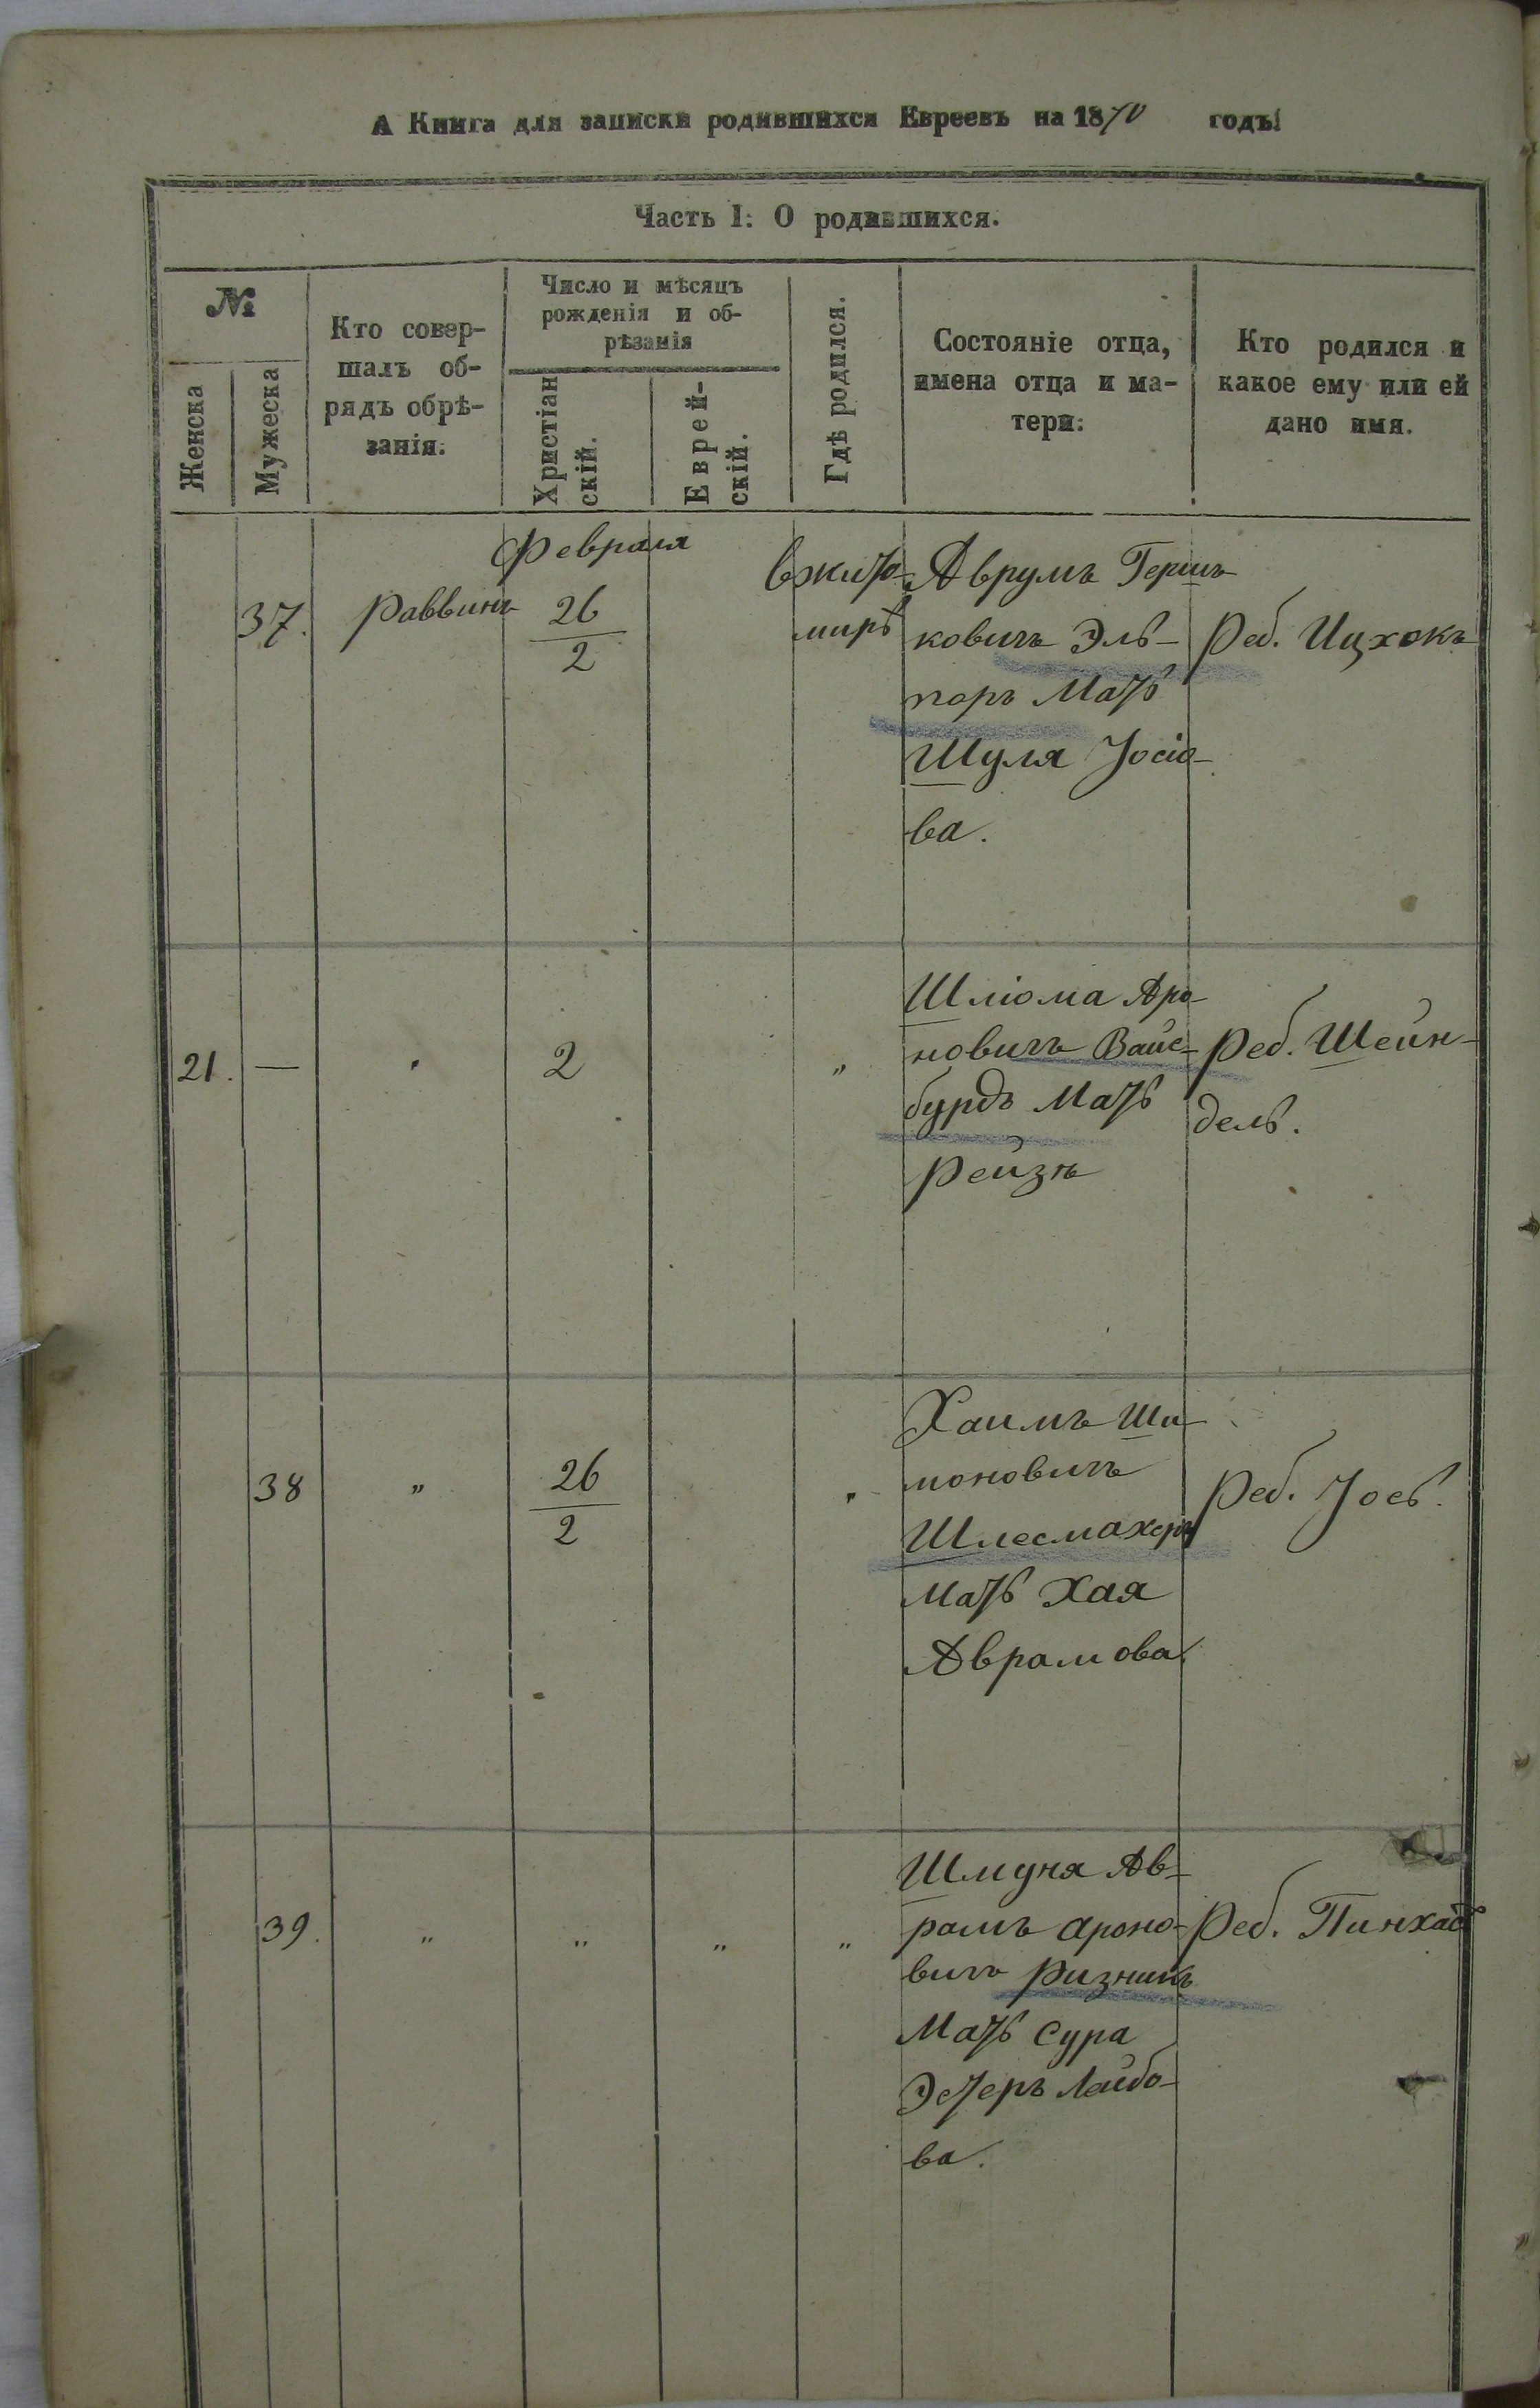 А Книга для записки родившихся Евреевъ на 1870 годъ.
Часть I: О родившихся.
№
Женска
Мужеска
Кто совер-
шалъ об-
рядъ обрѣ-
занія.
Число и мѣсяцъ
рожденія и об-
рѣзанія
Христіан
скій.
Еврей-
скій.
Гдѣ родился.
Состояніе отца,
имена отца и ма-
тери:
Кто родился и
какое ему или ей
дано имя.
37.
Раввинъ
Февраля
26
2
вжито-
мирѣ
Аврумъ Герш-
ковичъ Эль-
поръ Мать
Шуля Іосіо-
ва.
Реб. Ицхокъ
21. —
"
2
"
Шліома Аро-
новичъ Вайс-
бурдъ Мать
Рейзя
Реб. Шейн-
дель.
38
"
26
2
"
Хаимъ Ши-
моновичъ
Шлесмахеръ
Мать Хая
Аврамова.
Реб. Іось.
39.
"
"
"
"
Шмуня Ав-
рамъ Ароно-
вичъ Ризникъ
Мать Сура
Эстеръ Лейбо-
ва.
Реб. Пинхас